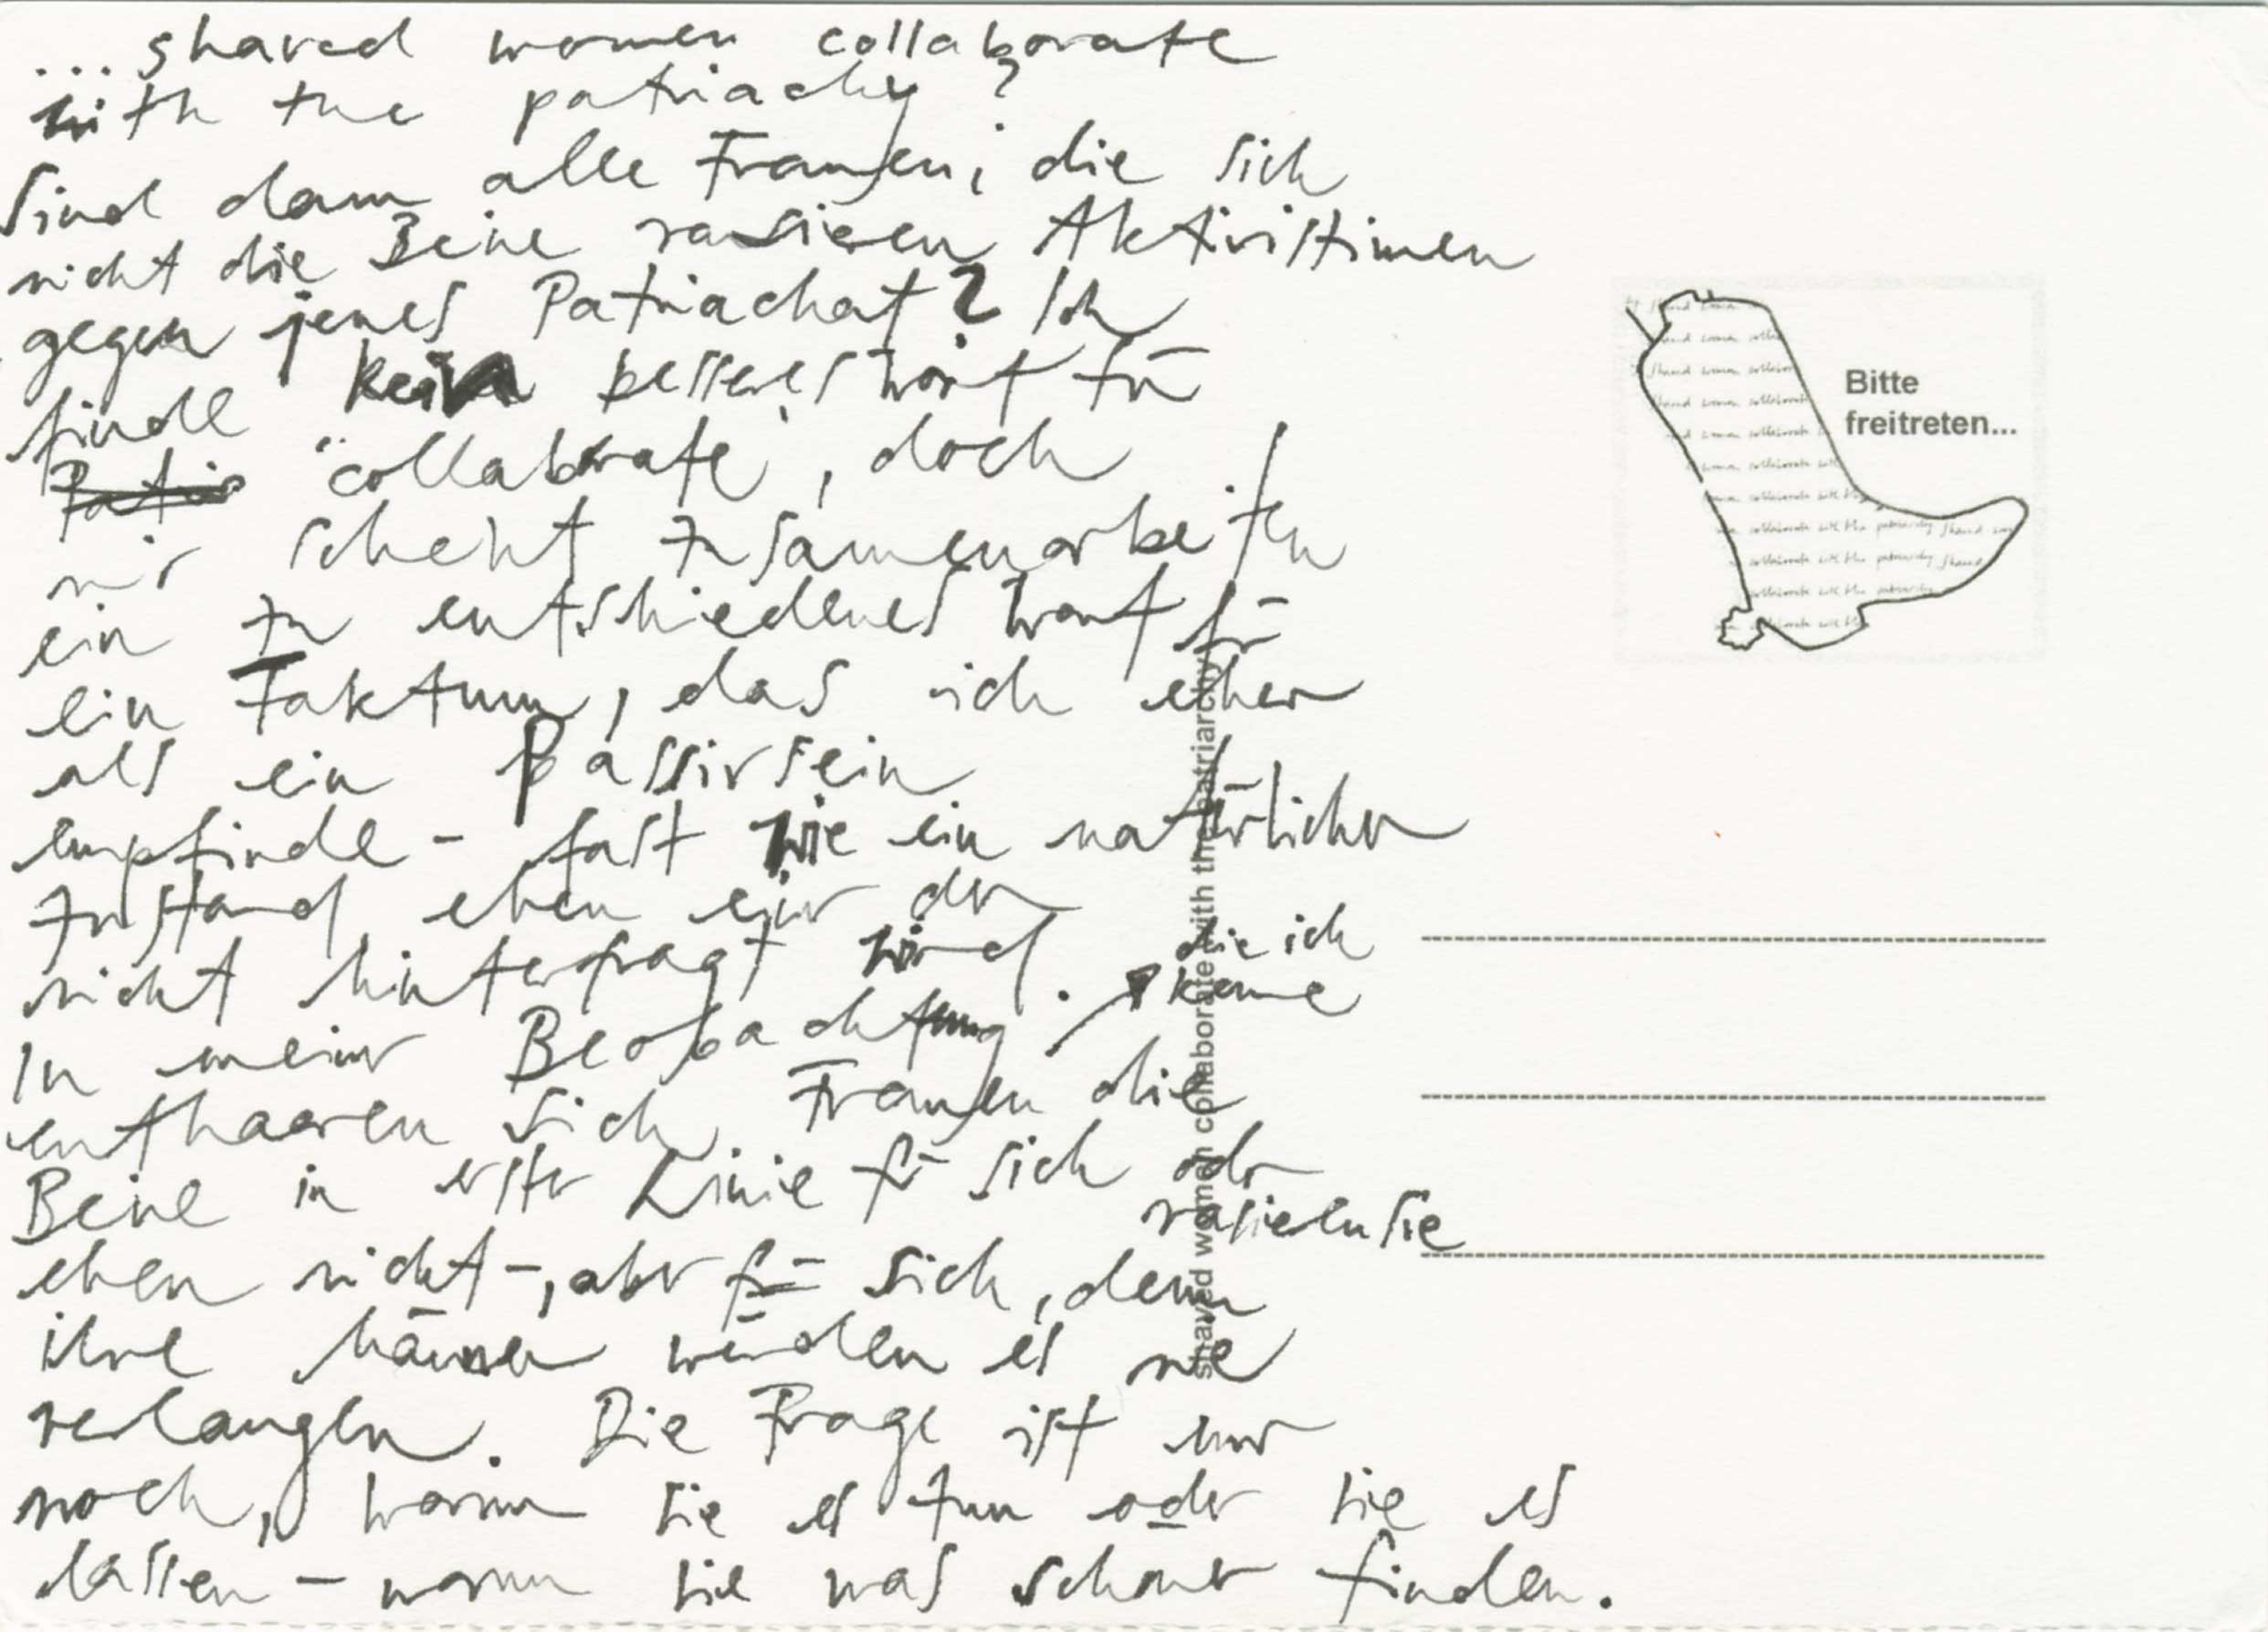 ... shaved women collaborate
with the patriachy?
Sind dann alle Frauen, die sich
nicht die Beine rasieren Aktivistinnen
gegen jenes Patriachat? Ich
finde kein besseres Wort für
"collaborate", doch
mir scheint zusammenarbeiten
ein zu entschiedenes Wort für
ein Faktum, das ich eher
als ein Passivsein
empfinde - fast wie ein natürlicher
Zustand eben einer der
nicht hinterfragt wird.
In meiner Beobachtung
die ich
kenne
enthaaren sich Frauen die
Beine in erster Linie für sich oder
rasieren sie
eben nicht -, aber für sich, denn
ihre Männer würden es nie
verlangen. Die Frage ist nur
noch, warum sie es tun oder sie es
lassen - warum sie was schöner finden.
Bitte
freitreten...
shaved women collaborate with the patriarchy